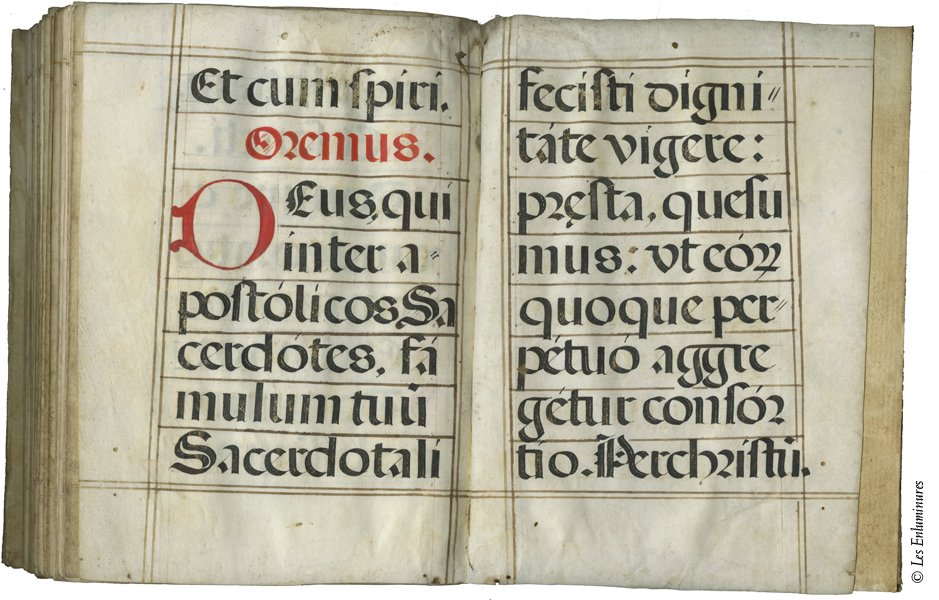 Et cum spiri.
Oremus.
DEus, qui
inter a⸗
postólicos Sa
cerdótes, fá
mulum tuũ
Sacerdotali
fecisti digni⸗
táte vigere:
pręsta, quesu
mus: vt eóꝝ
quoque per⸗
pétuó aggre
gétur consór
tio. Per christũ.
© Les Enluminures